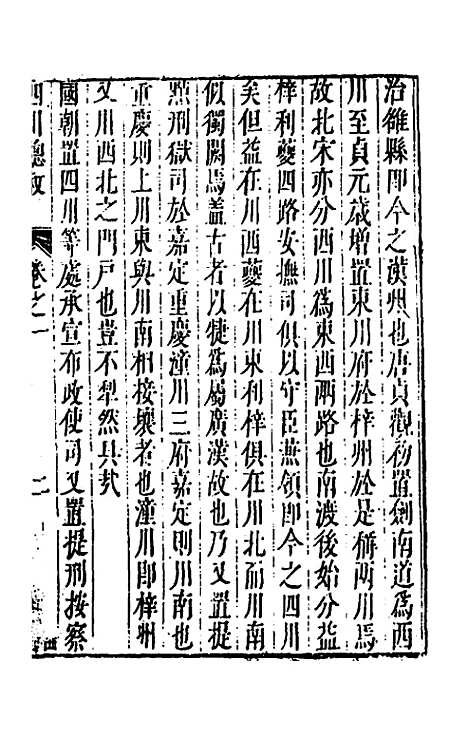 治雒縣即今之漢州也唐貞觀初置劍南道爲西
川至貞元歲增置東川府於梓州於是稱兩川焉
故北宋亦分西川爲東西兩路也南渡後始分益
梓利夔四路安撫司俱以守臣兼領即今之四川
矣但益在川西夔在川東利梓俱在川北而川南
似獨闕焉蓋古者以犍爲屬廣漢故也乃又置提
㸃刑獄司於嘉定重慶潼川三府嘉定則川南也
重慶則上川東與川南相接壤者也潼川即梓州
又川西北之門戶也豈不犁然具哉
國朝置四川等處承宣布政使司又置提刑按察
四川總志 卷之一 二